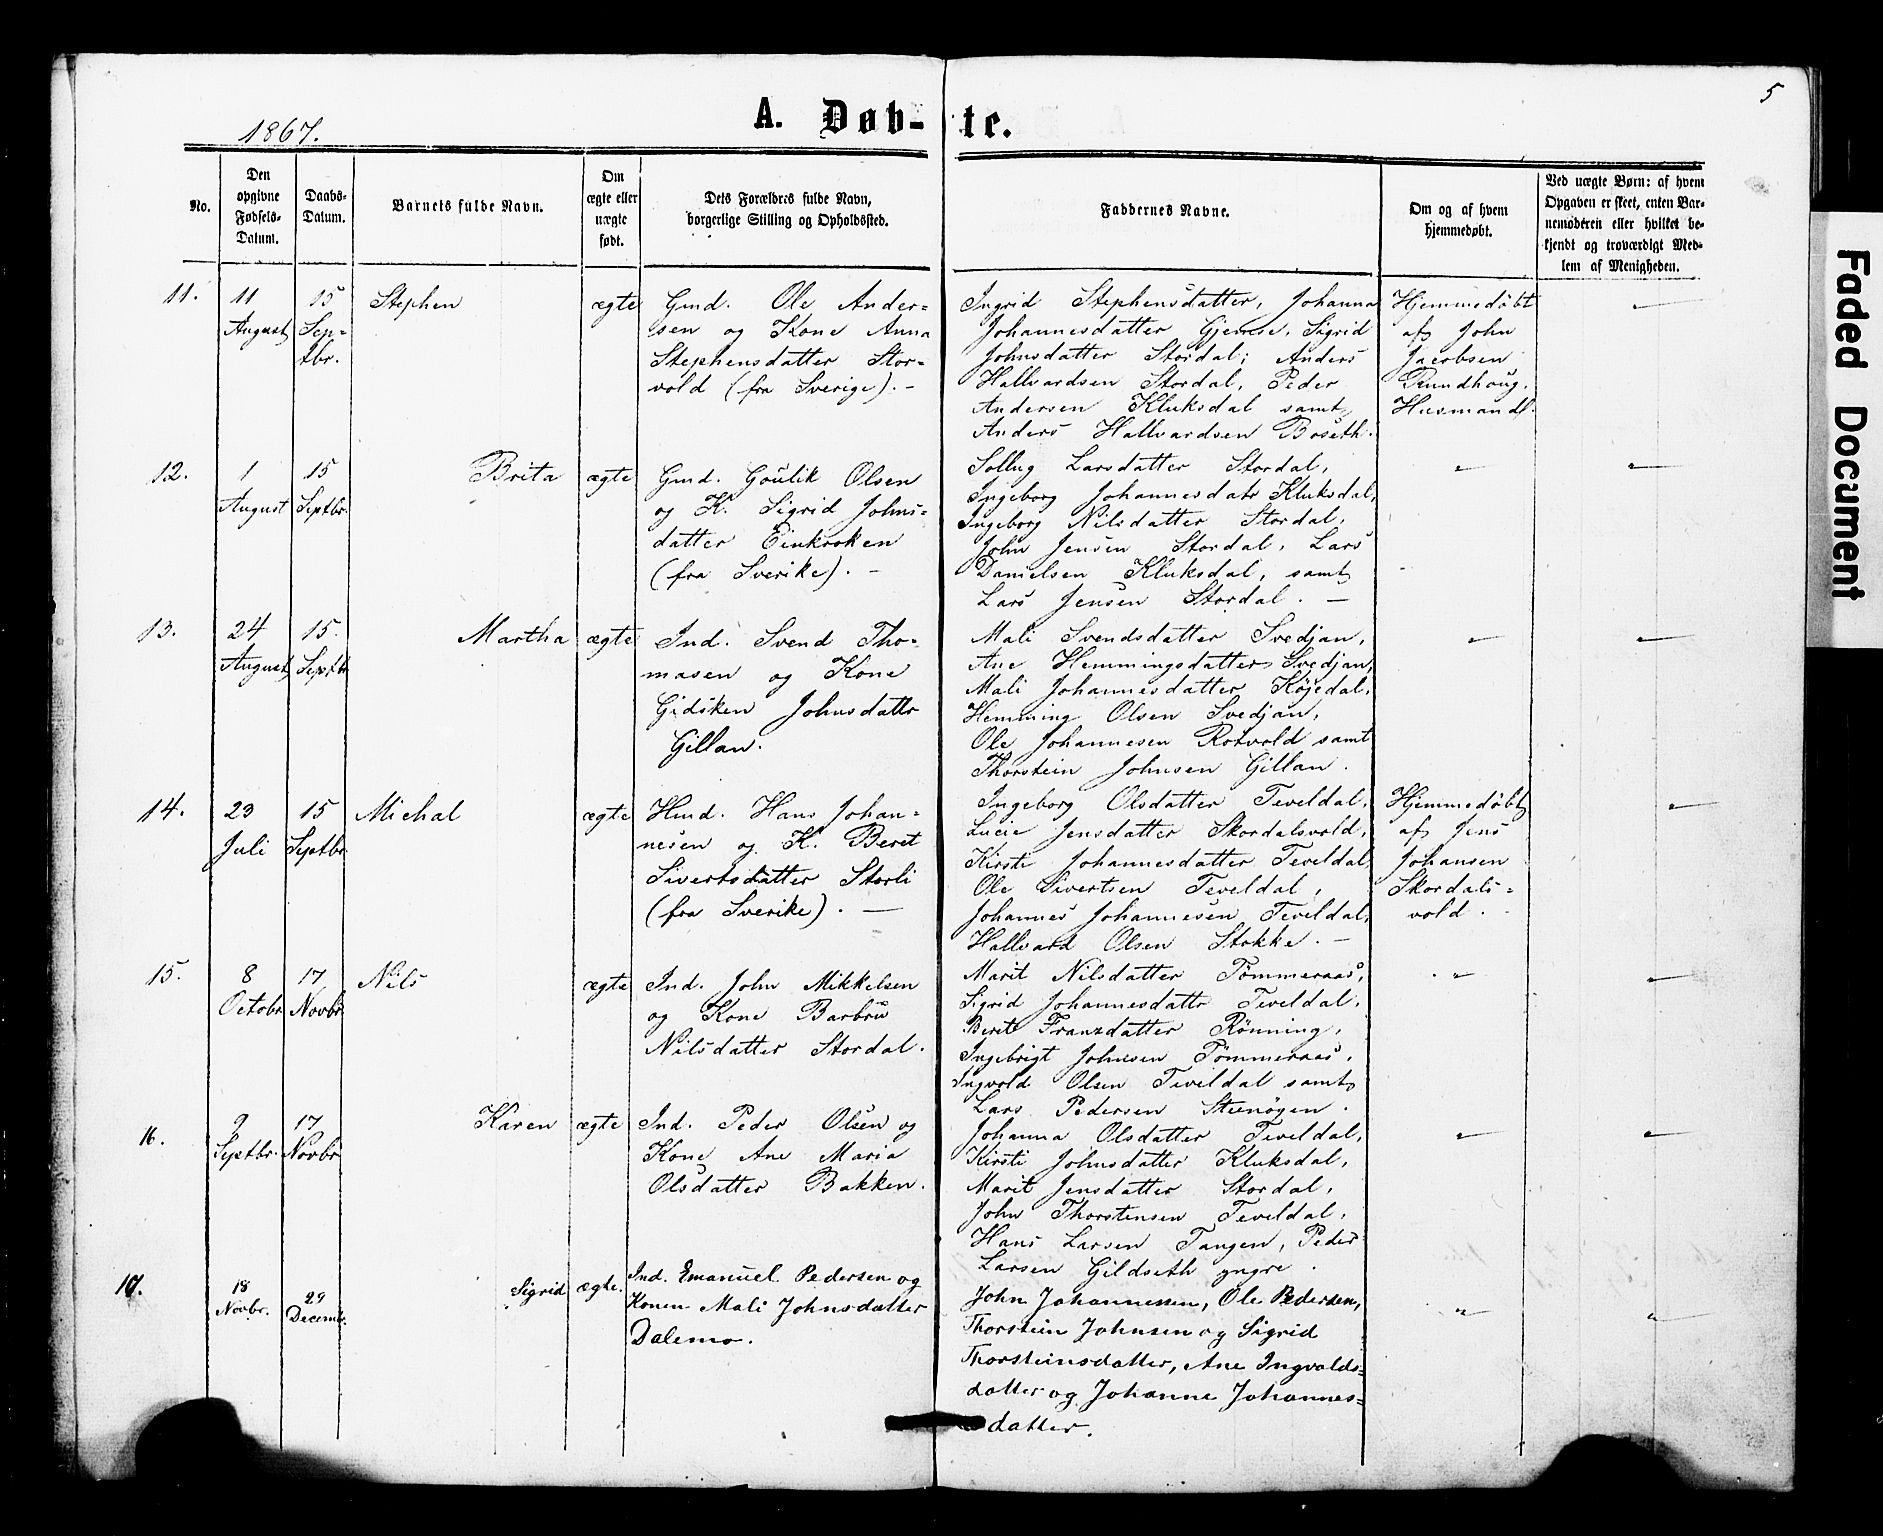 5
1867.
A. Døb- te.
No.
Den
opgivne
Fødsels-
Datum.
Daabs-
Datum.
Barnets fulde Navn.
Om
ægte eller
uægte
født.
Dets Forældres fulde Navn,
borgerlige Stilling og Opholdssted.
Faddernes Navne.
Om og af hvem
hjemmedøbt.
Ved uægte Børn: af hvem
Opgaven er skeet, enten Bar-
nemoderen eller hvilket be-
kjendt og troværdigt Med-
lem af Menigheden.
11.
11
August
15
Sep-
tbr.
Stephen
ægte
Gmd. Ole Ander-
sen og Kone Anna
Stephensdatter Stor-
vold (fra Sverige). -
Ingrid Stephensdatter, Johanna
Johannesdatter Gjemse, Sigrid
Johnsdatter Stordal; Anders
Hallvardsen Stordal, Peder
Andersen Kluksdal samt
Anders Hallvardsen Boseth.
Hjemmedøbt
af John
Jacobsen
Rundhoug,
Husmand.
—
12.
1
August
15
Septbr.
Brita
ægte
Gmd. Goulik Olsen
og K. Sigrid Johns-
datter Einkroken
(fra Sverike). -
Sollug Larsdatter Stordal,
Ingeborg Johannesdatr Kluksdal,
Ingeborg Nilsdatter Stordal,
John Jensen Stordal, Lars
Danielsen Kluksdal, samt
Lars Jensen Stordal. —
—
—
13.
24
August
15.
Septbr
Martha
ægte
Ind. Svend Tho-
masen og Kone
Gidsken Johnsdattr
Gillan.
Mali Svendsdatter Svedjan,
Ane Hemmingsdatter Svedjan,
Mali Johannesdatter Köjedal,
Hemming Olsen Svedjan,
Ole Johannesen Rotvold samt
Thorstein Johnsen Gillan.
—
—
14.
23
Juli
15
Septbr
Michal
ægte
Hmd. Hans Johan-
nesen og K. Beret
Sivertsdatter Storli
(fra Sverike). —
Ingeborg Olsdatter Teveldal,
Lucie Jensdatter Skordalsvold,
Kirsti Johannesdatter Teveldal
Ole Sivertsen Teveldal,
Johannes Johannesen Teveldal,
Hallvard Olsen Stokke. —
Hjemmedøbt
af Jens
Johansen
Skordals-
vold.
—
15.
8
Octobr
17
Novbr
Nils
ægte
Ind. John Mikkelsen
og Kone Barbru
Nilsdatter Stordal.
Marit Nilsdatter Tömmeraas,
Sigrid Johannesdattr Teveldal,
Berit Franzdatter Rönning,
Ingebrigt Johnsen Tömmeraas,
Ingvold Olsen Teveldal samt
Lars Pedersen Stenögen.
"
—
16.
9
Septbr.
17
Novbr
Karen
ægte
Ind. Peder Olsen og
Kone Ane Maria
Olsdatter Bakken.
Johanna Olsdatter Teveldal,
Kirsti Johnsdatter Kluksdal,
Marit Jensdatter Stordal,
John Thorstensen Teveldal,
Hans Larsen Tangen, Peder
Larsen Gildseth yngre.
—
—
17.
18
Novbr.
29
Decembr.
Sigrid
ægte.
Ind. Emanuel Pedersen og
Konen Mali Johnsdatter
Dalemo.
John Johannessen, Ole Pedersen,
Thorstein Johnsen og Sigrid
Thorsteinsdatter, Ane Ingvalds-
datter og Johanne Johannes-
datter.
"
"
Faded Document